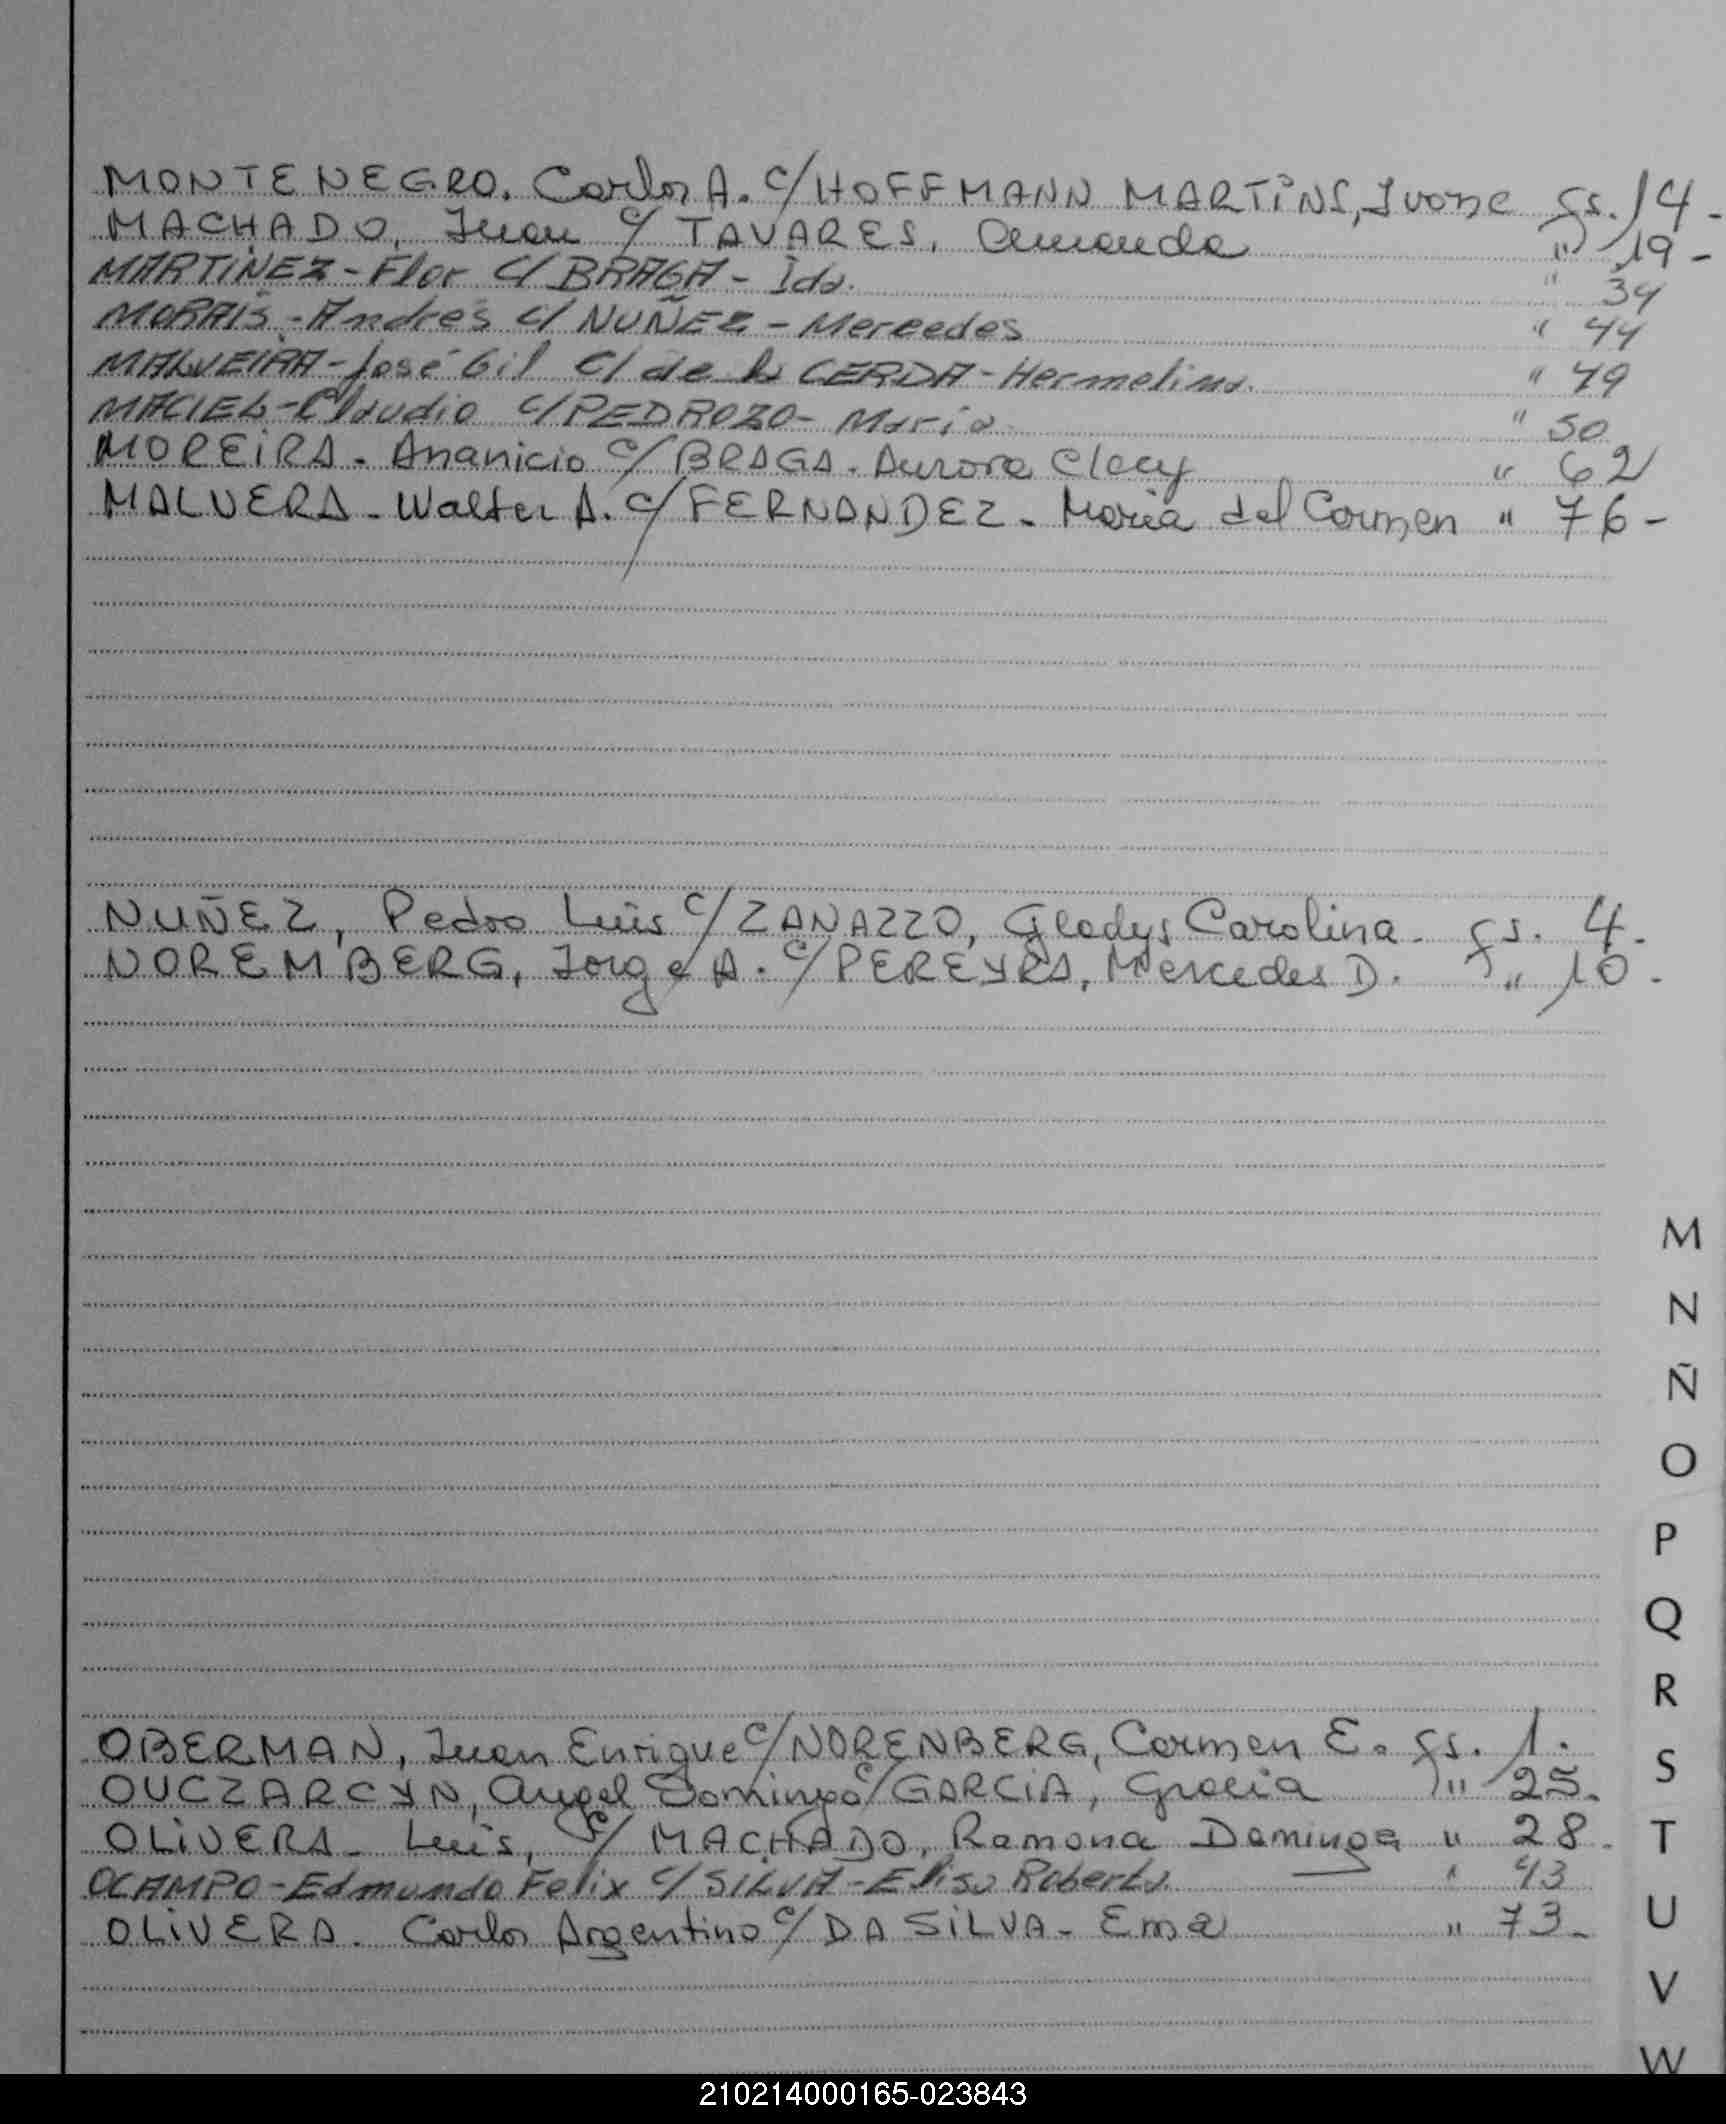 MONTENEGRO. Carlos A. c/ HOFFMANN MARTiNS, Ivone fs. 14-
MACHADO, Juan c/ TAVARES. Amanda " 19-
MARTiNEZ - Flor c/ BRAGA - Ida. " 34
MORAIS - Andrés c/ NUÑEZ - Mercedes " 44
MALVEIRA - José Gil c/ de la CERDA - Hermelina. " 49
MACIEL - Claudio c/ PEDROZO - María " 50
MOREiRA. Ananicio c/ BRAGA. Aurora Clecy " 62
MALVERA - Walter A. c/ FERNANDEZ - Maria del Carmen " 76-
NUÑEZ, Pedro Luis c/ ZANAZZO, Gladys Carolina. fs. 4.
NOREMBERG, Jorge A. c/ PEREYRA, Mercedes D. " 10.
M
N
Ñ
O
P
Q
R
S
T
U
V
W
OBERMAN, Juan Enrique c/ NORENBERG, Carmen E. fs. 1.
OUCZARCYN, Angel Domingo c/ GARCiA, Gracia " 25.
OLiVERA - Luis, c/ MACHADO, Ramona Dominga " 28.
OCAMPO - Edmundo Felix c/ SiLVA - Elisa Roberta. " 43
OLiVERA. Carlos Argentino c/ DA SiLVA - Ema " 73-
210214000165-023843